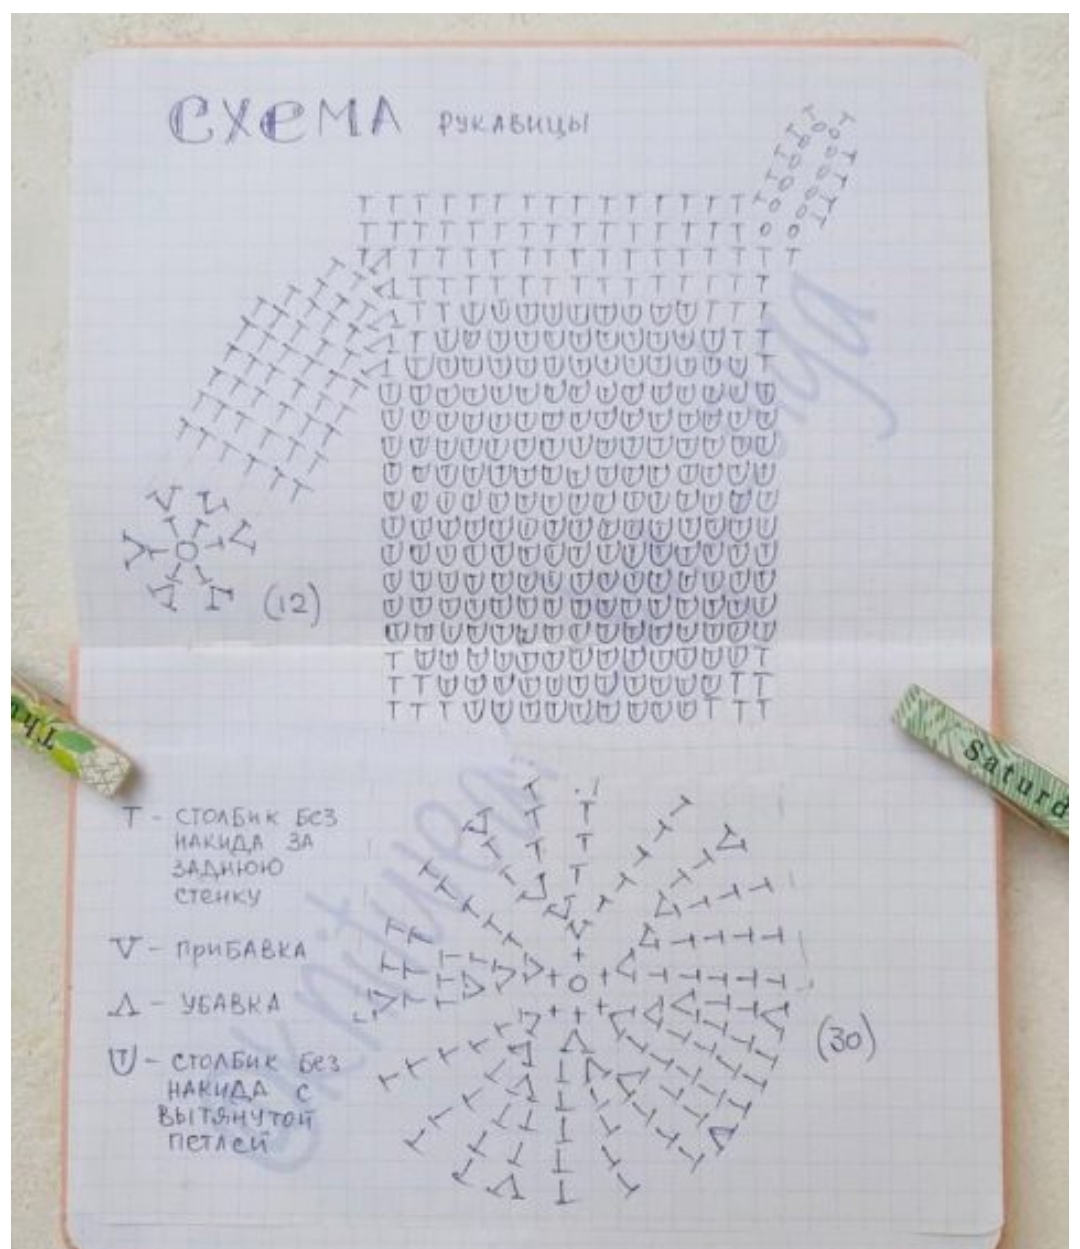 СХЕМА РУКАВИЦЫ
(12)
T - СТОЛБИК БЕЗ
НАКИДА ЗА
ЗАДНЮЮ
СТЕНКУ
V - ПРИБАВКА
Λ - УБАВКА
(30)
СТОЛБИК БЕЗ
НАКИДА С
ВЫТЯНУТОЙ
ПЕТЛЕЙ
Saturd